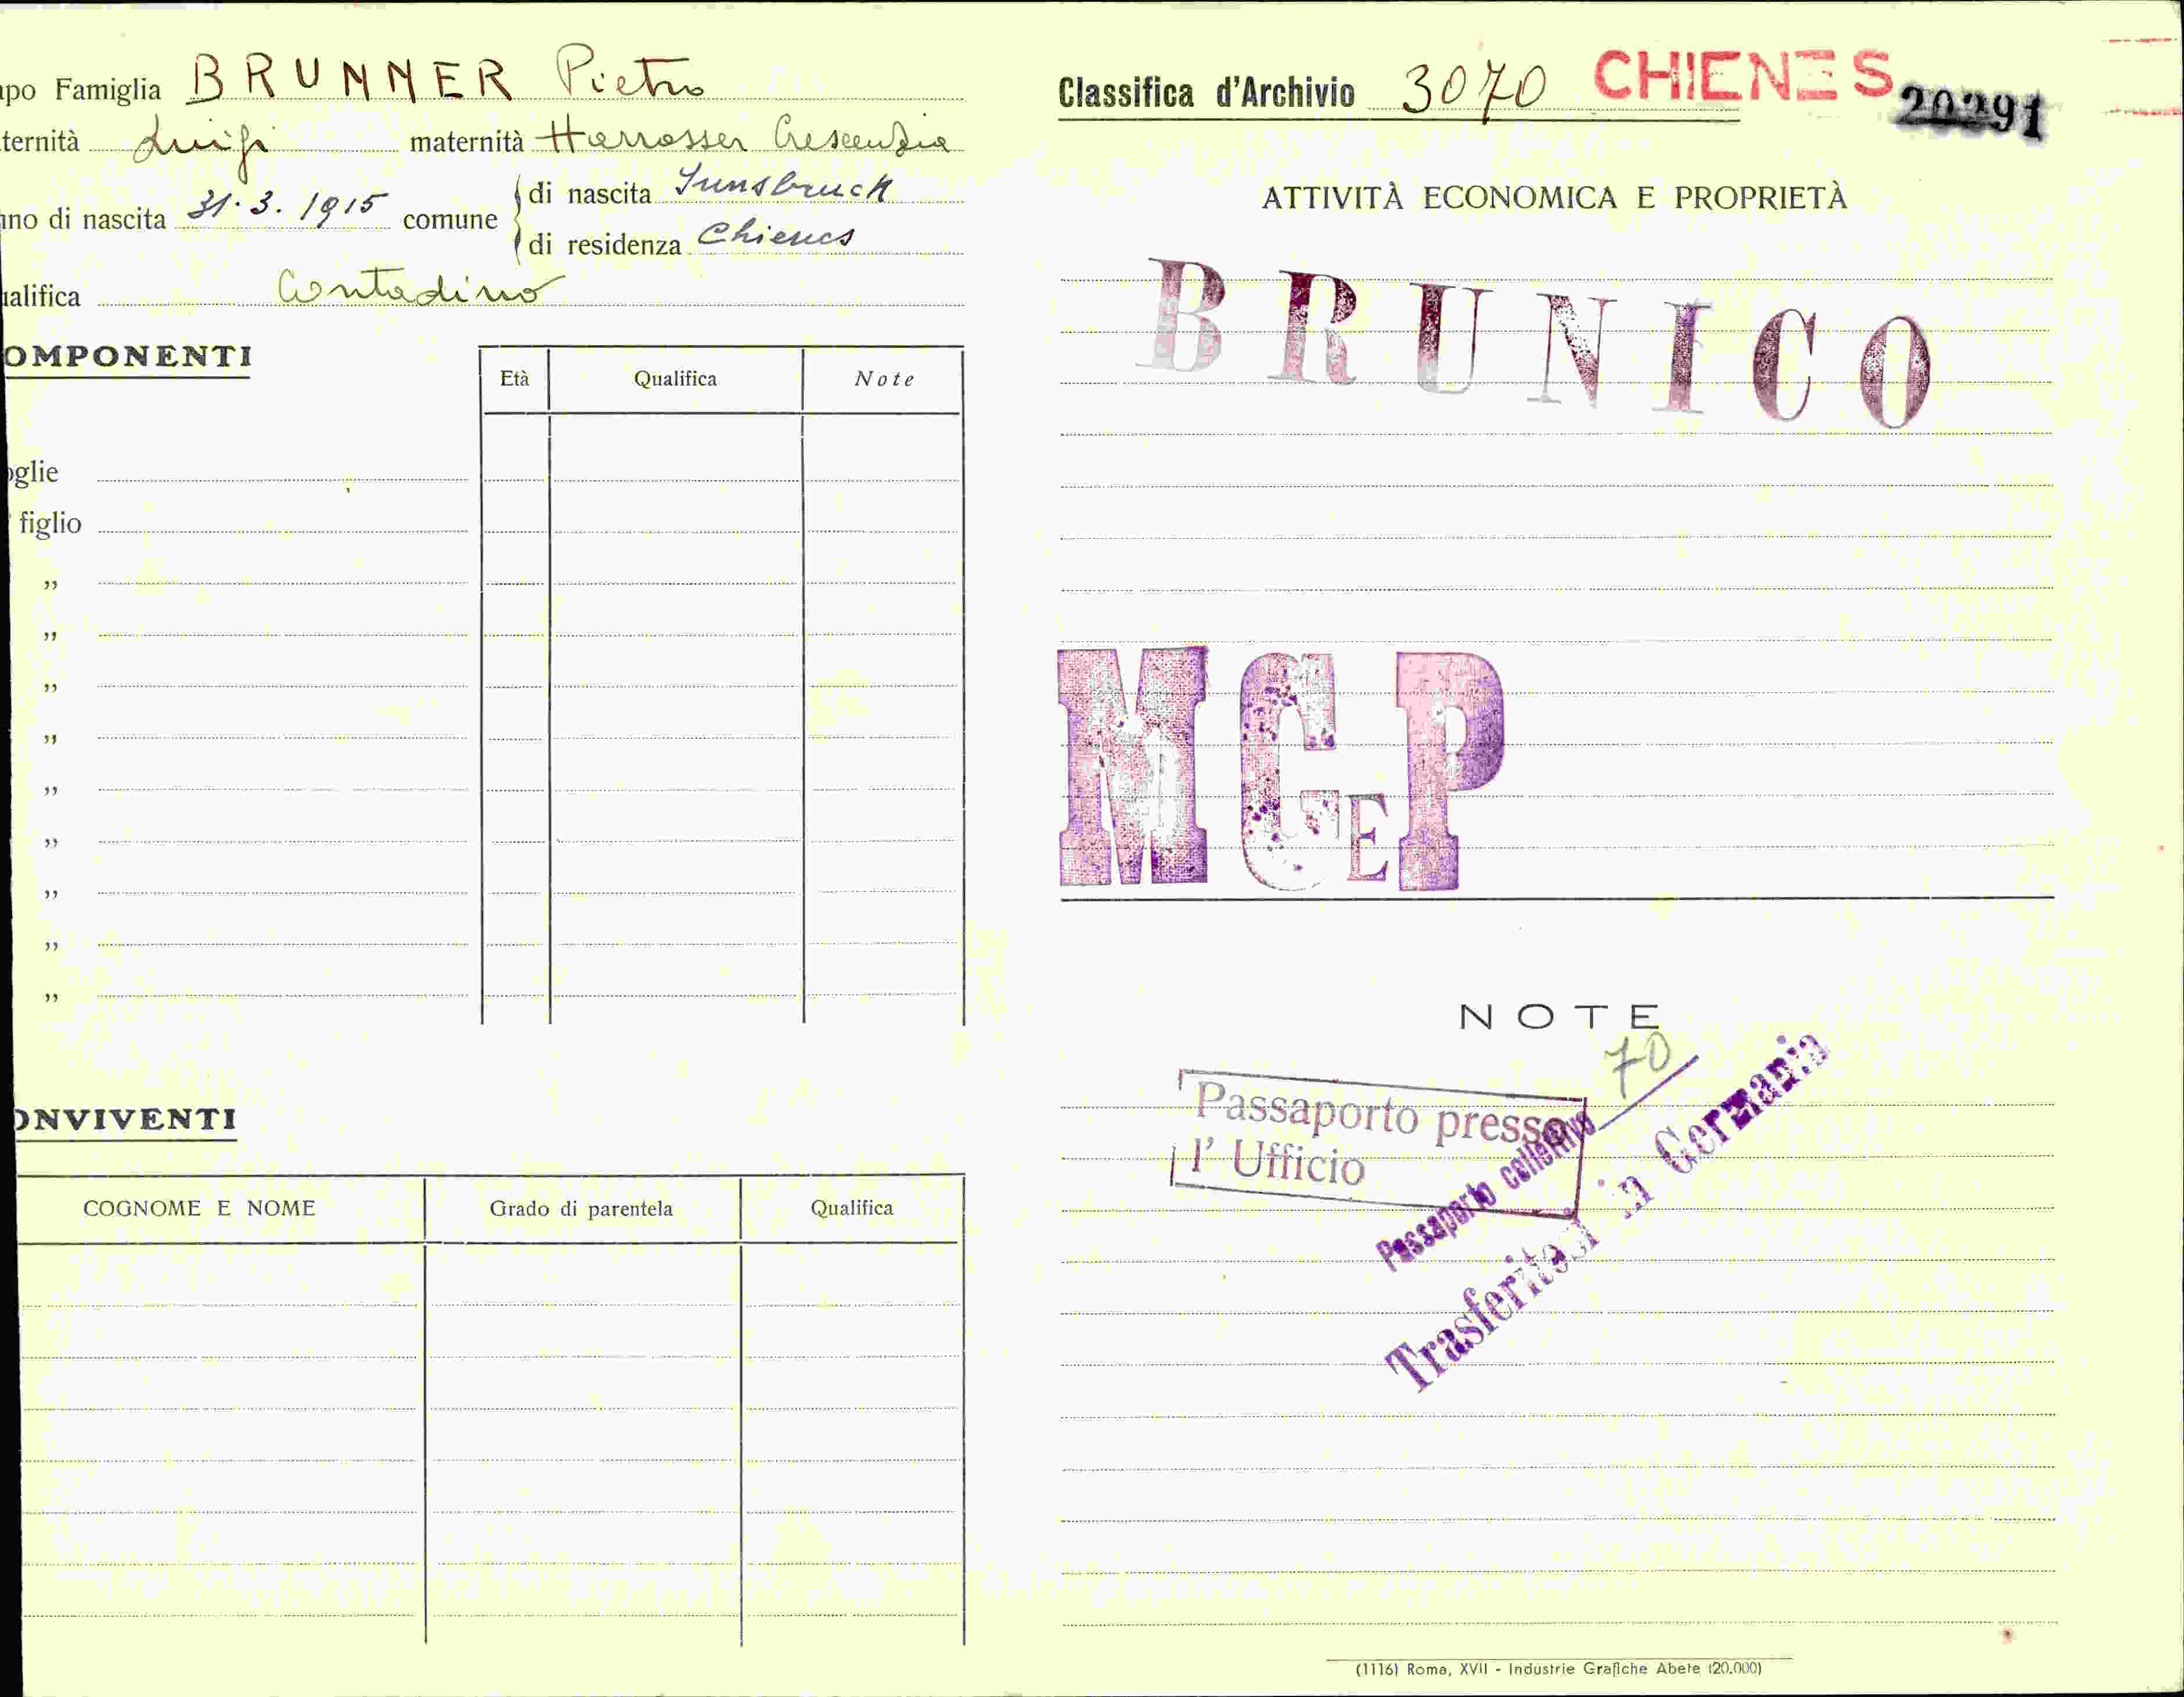 po Famiglia BRUNNER Pietro
ternità Luigi maternità Harrasser Crescenzia
no di nascita 31.3.1915 comune di nascita Innsbruck
di residenza Chienes
alifica Contadino
OMPONENTI
Età Qualifica Note
oglie
figlio
„
„
„
„
„
„
„
„
„
ONVIVENTI
COGNOME E NOME Grado di parentela Qualifica
Classifica d'Archivio 3070 CHIENES
ATTIVITÀ ECONOMICA E PROPRIETÀ
BRUNICO
MCEP
NOTE
70
Passaporto presso
l' Ufficio
Passaporto collettivo
Trasferitosi in Germania
(1116) Roma, XVII - Industrie Grafiche Abete (20.000)